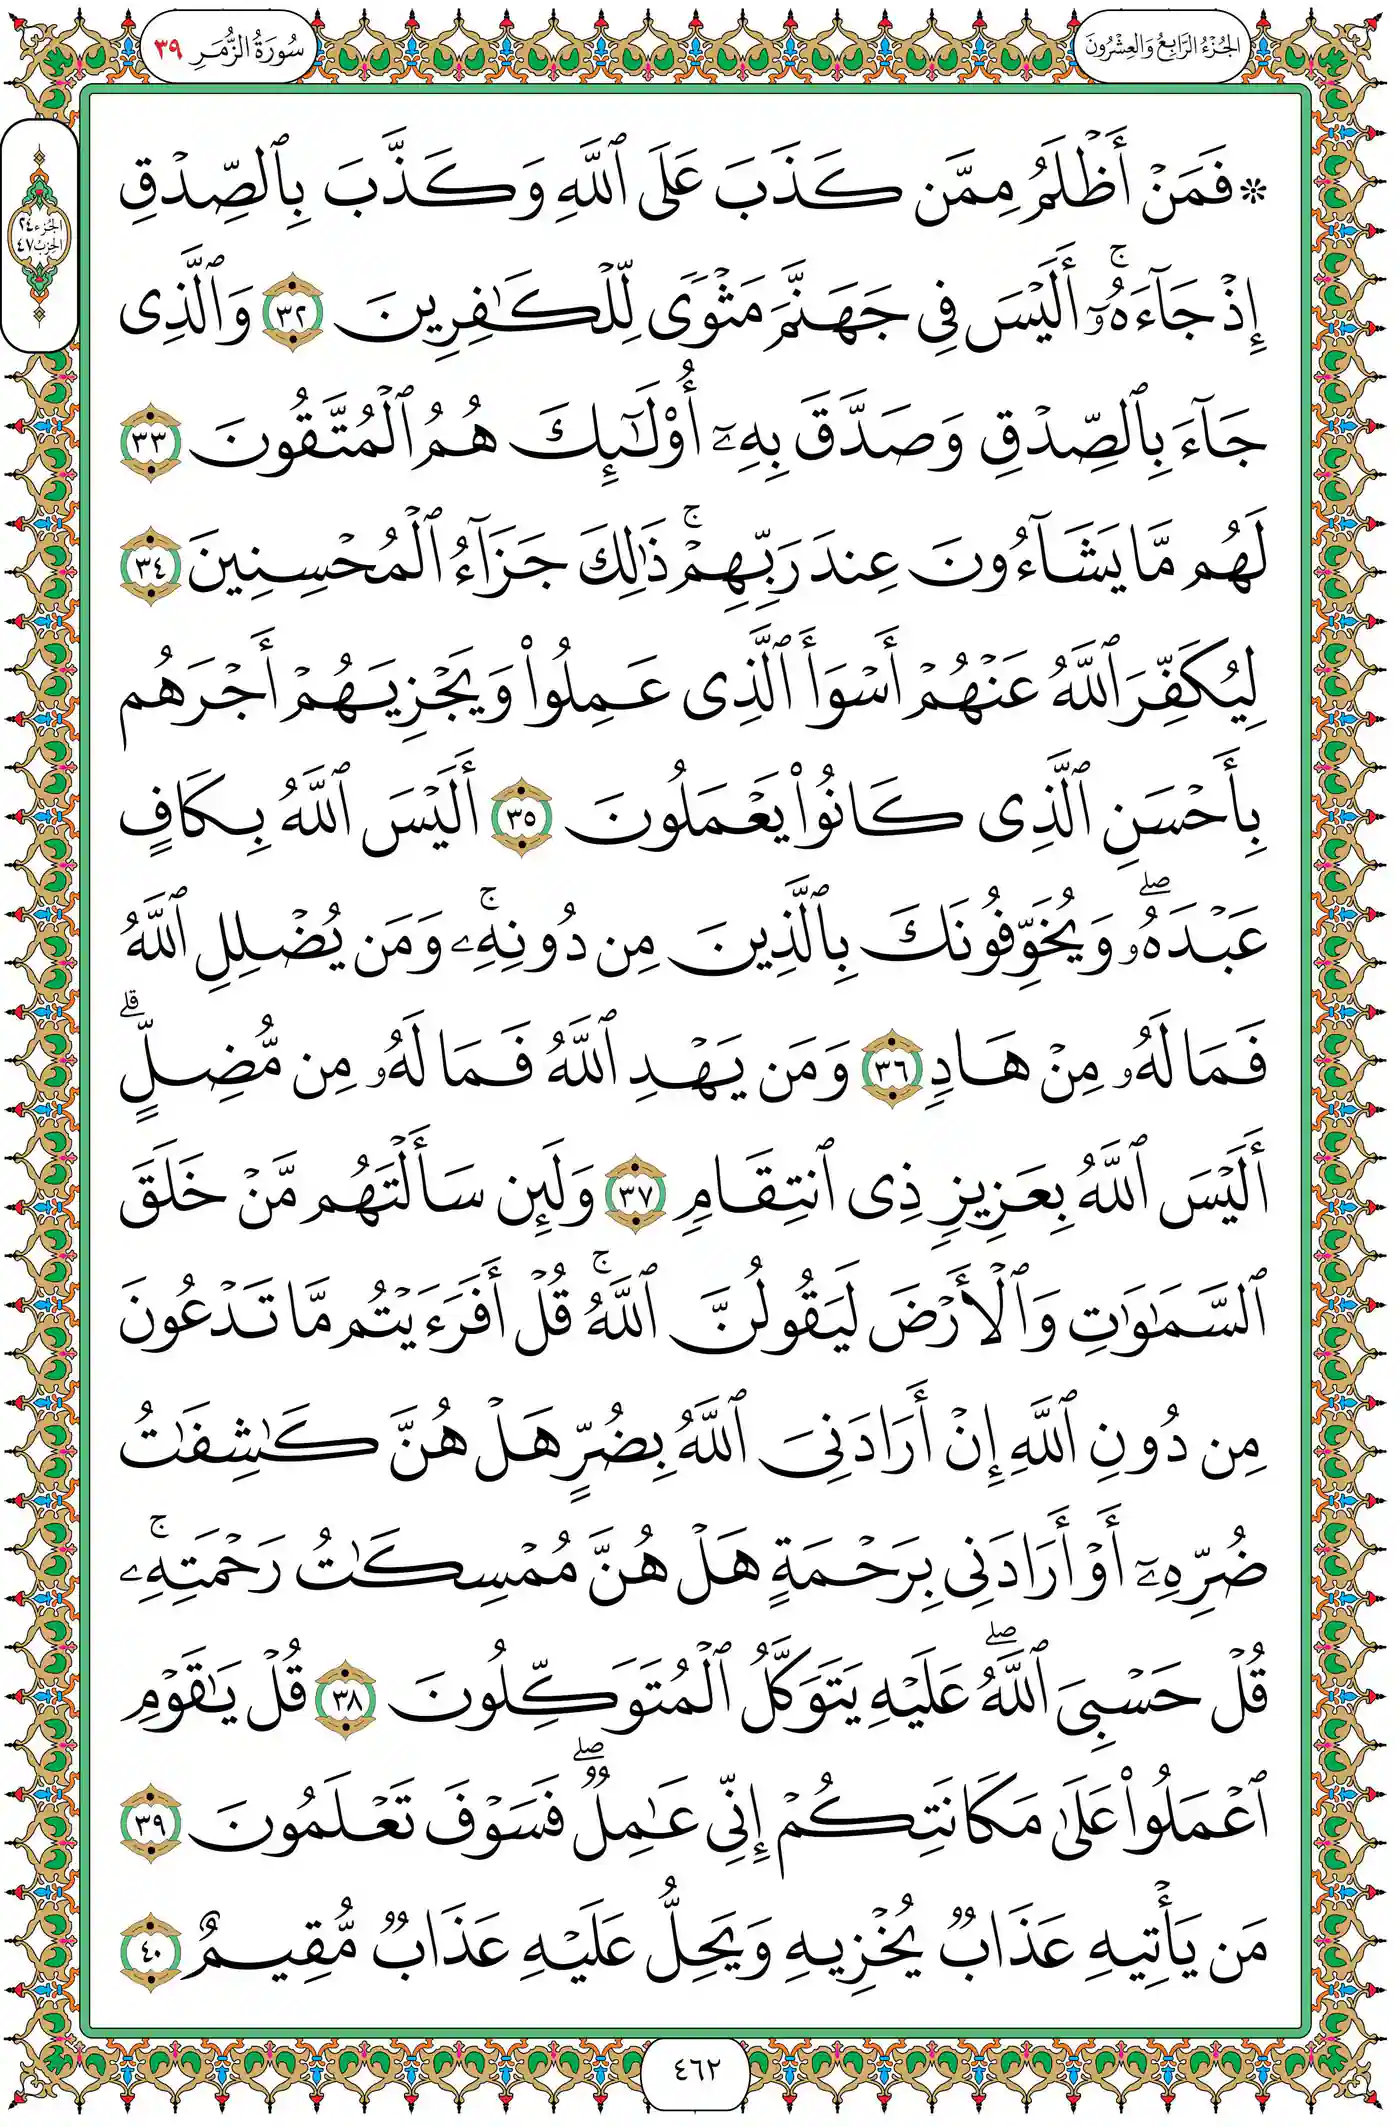 الجُزْءُ الرَّابِعُ وَالعِشْرُونَ
سُورَةُ الزُّمَرِ ٣٩
الجزء ٢٤
الحزب ٤٧
۞ فَمَنۡ أَظۡلَمُ مِمَّن كَذَبَ عَلَى ٱللَّهِ وَكَذَّبَ بِٱلصِّدۡقِ
إِذۡ جَآءَهُۥٓۚ أَلَيۡسَ فِي جَهَنَّمَ مَثۡوٗى لِّلۡكَٰفِرِينَ ٣٢ وَٱلَّذِي
جَآءَ بِٱلصِّدۡقِ وَصَدَّقَ بِهِۦٓ أُوْلَٰٓئِكَ هُمُ ٱلۡمُتَّقُونَ ٣٣
لَهُم مَّا يَشَآءُونَ عِندَ رَبِّهِمۡۚ ذَٰلِكَ جَزَآءُ ٱلۡمُحۡسِنِينَ ٣٤
لِيُكَفِّرَ ٱللَّهُ عَنۡهُمۡ أَسۡوَأَ ٱلَّذِي عَمِلُواْ وَيَجۡزِيَهُمۡ أَجۡرَهُم
بِأَحۡسَنِ ٱلَّذِي كَانُواْ يَعۡمَلُونَ ٣٥ أَلَيۡسَ ٱللَّهُ بِكَافٍ
عَبۡدَهُۥۖ وَيُخَوِّفُونَكَ بِٱلَّذِينَ مِن دُونِهِۦۚ وَمَن يُضۡلِلِ ٱللَّهُ
فَمَا لَهُۥ مِنۡ هَادٖ ٣٦ وَمَن يَهۡدِ ٱللَّهُ فَمَا لَهُۥ مِن مُّضِلٍّۗ
أَلَيۡسَ ٱللَّهُ بِعَزِيزٖ ذِي ٱنتِقَامٖ ٣٧ وَلَئِن سَأَلۡتَهُم مَّنۡ خَلَقَ
ٱلسَّمَٰوَٰتِ وَٱلۡأَرۡضَ لَيَقُولُنَّ ٱللَّهُۚ قُلۡ أَفَرَءَيۡتُم مَّا تَدۡعُونَ
مِن دُونِ ٱللَّهِ إِنۡ أَرَادَنِيَ ٱللَّهُ بِضُرٍّ هَلۡ هُنَّ كَٰشِفَٰتُ
ضُرِّهِۦٓ أَوۡ أَرَادَنِي بِرَحۡمَةٍ هَلۡ هُنَّ مُمۡسِكَٰتُ رَحۡمَتِهِۦۚ
قُلۡ حَسۡبِيَ ٱللَّهُۖ عَلَيۡهِ يَتَوَكَّلُ ٱلۡمُتَوَكِّلُونَ ٣٨ قُلۡ يَٰقَوۡمِ
ٱعۡمَلُواْ عَلَىٰ مَكَانَتِكُمۡ إِنِّي عَٰمِلٞۖ فَسَوۡفَ تَعۡلَمُونَ ٣٩
مَن يَأۡتِيهِ عَذَابٞ يُخۡزِيهِ وَيَحِلُّ عَلَيۡهِ عَذَابٞ مُّقِيمٌ ٤٠
٤٦٢